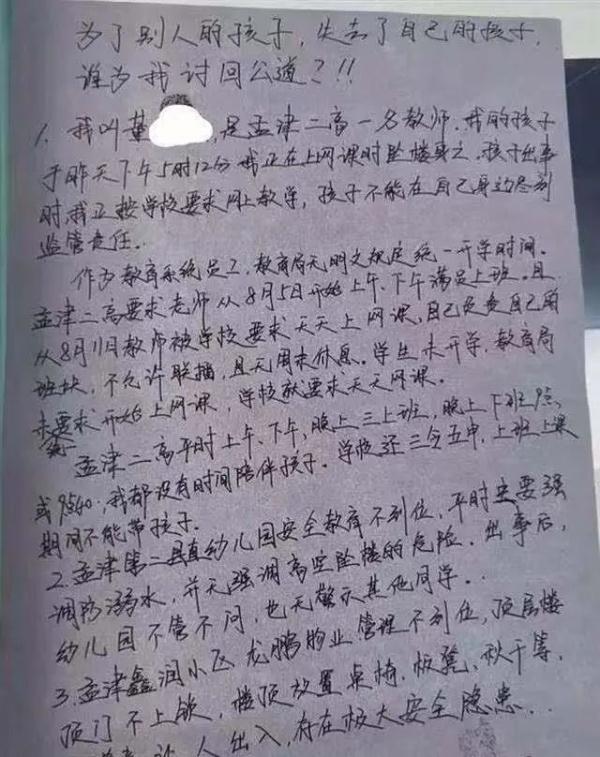 为了别人的孩子，失去了自己的孩子，
谁为我讨回公道？！！
1、我叫董 ，是孟津二高一名教师，我的孩子
于昨天下午5时12分我正在上网课时坠楼身亡。孩子出事
时，我正按学校要求网上教学，孩子不能在自己身边尽到
监管责任。
作为教育系统员工，教育局无明文规定统一开学时间。
孟津二高要求老师从8月5日开始上午、下午满员上班。且
从8月11日教师被学校要求天天上网课，自己负责自己的
班块，不允许联播，且无周末休息。学生未开学，教育局
未要求开始上网课，学校就要求天天网课。
孟津二高平时上午、下午，晚上三上班，晚上下班9点
或9点40，我都没有时间陪伴孩子。学校还三令五申，上班上课
期间不能带孩子。
2、孟津第二县直幼儿园安全教育不到位，平时主要强
调防溺水，并无强调高空坠楼的危险。出事后，
幼儿园不管不问，也无警示其他同学。
3、孟津鑫润小区龙鹏物业管理不到位，顶层楼
顶门不上锁，楼顶放置桌椅、板凳、秋千等，
人出入，存在极大安全隐患...